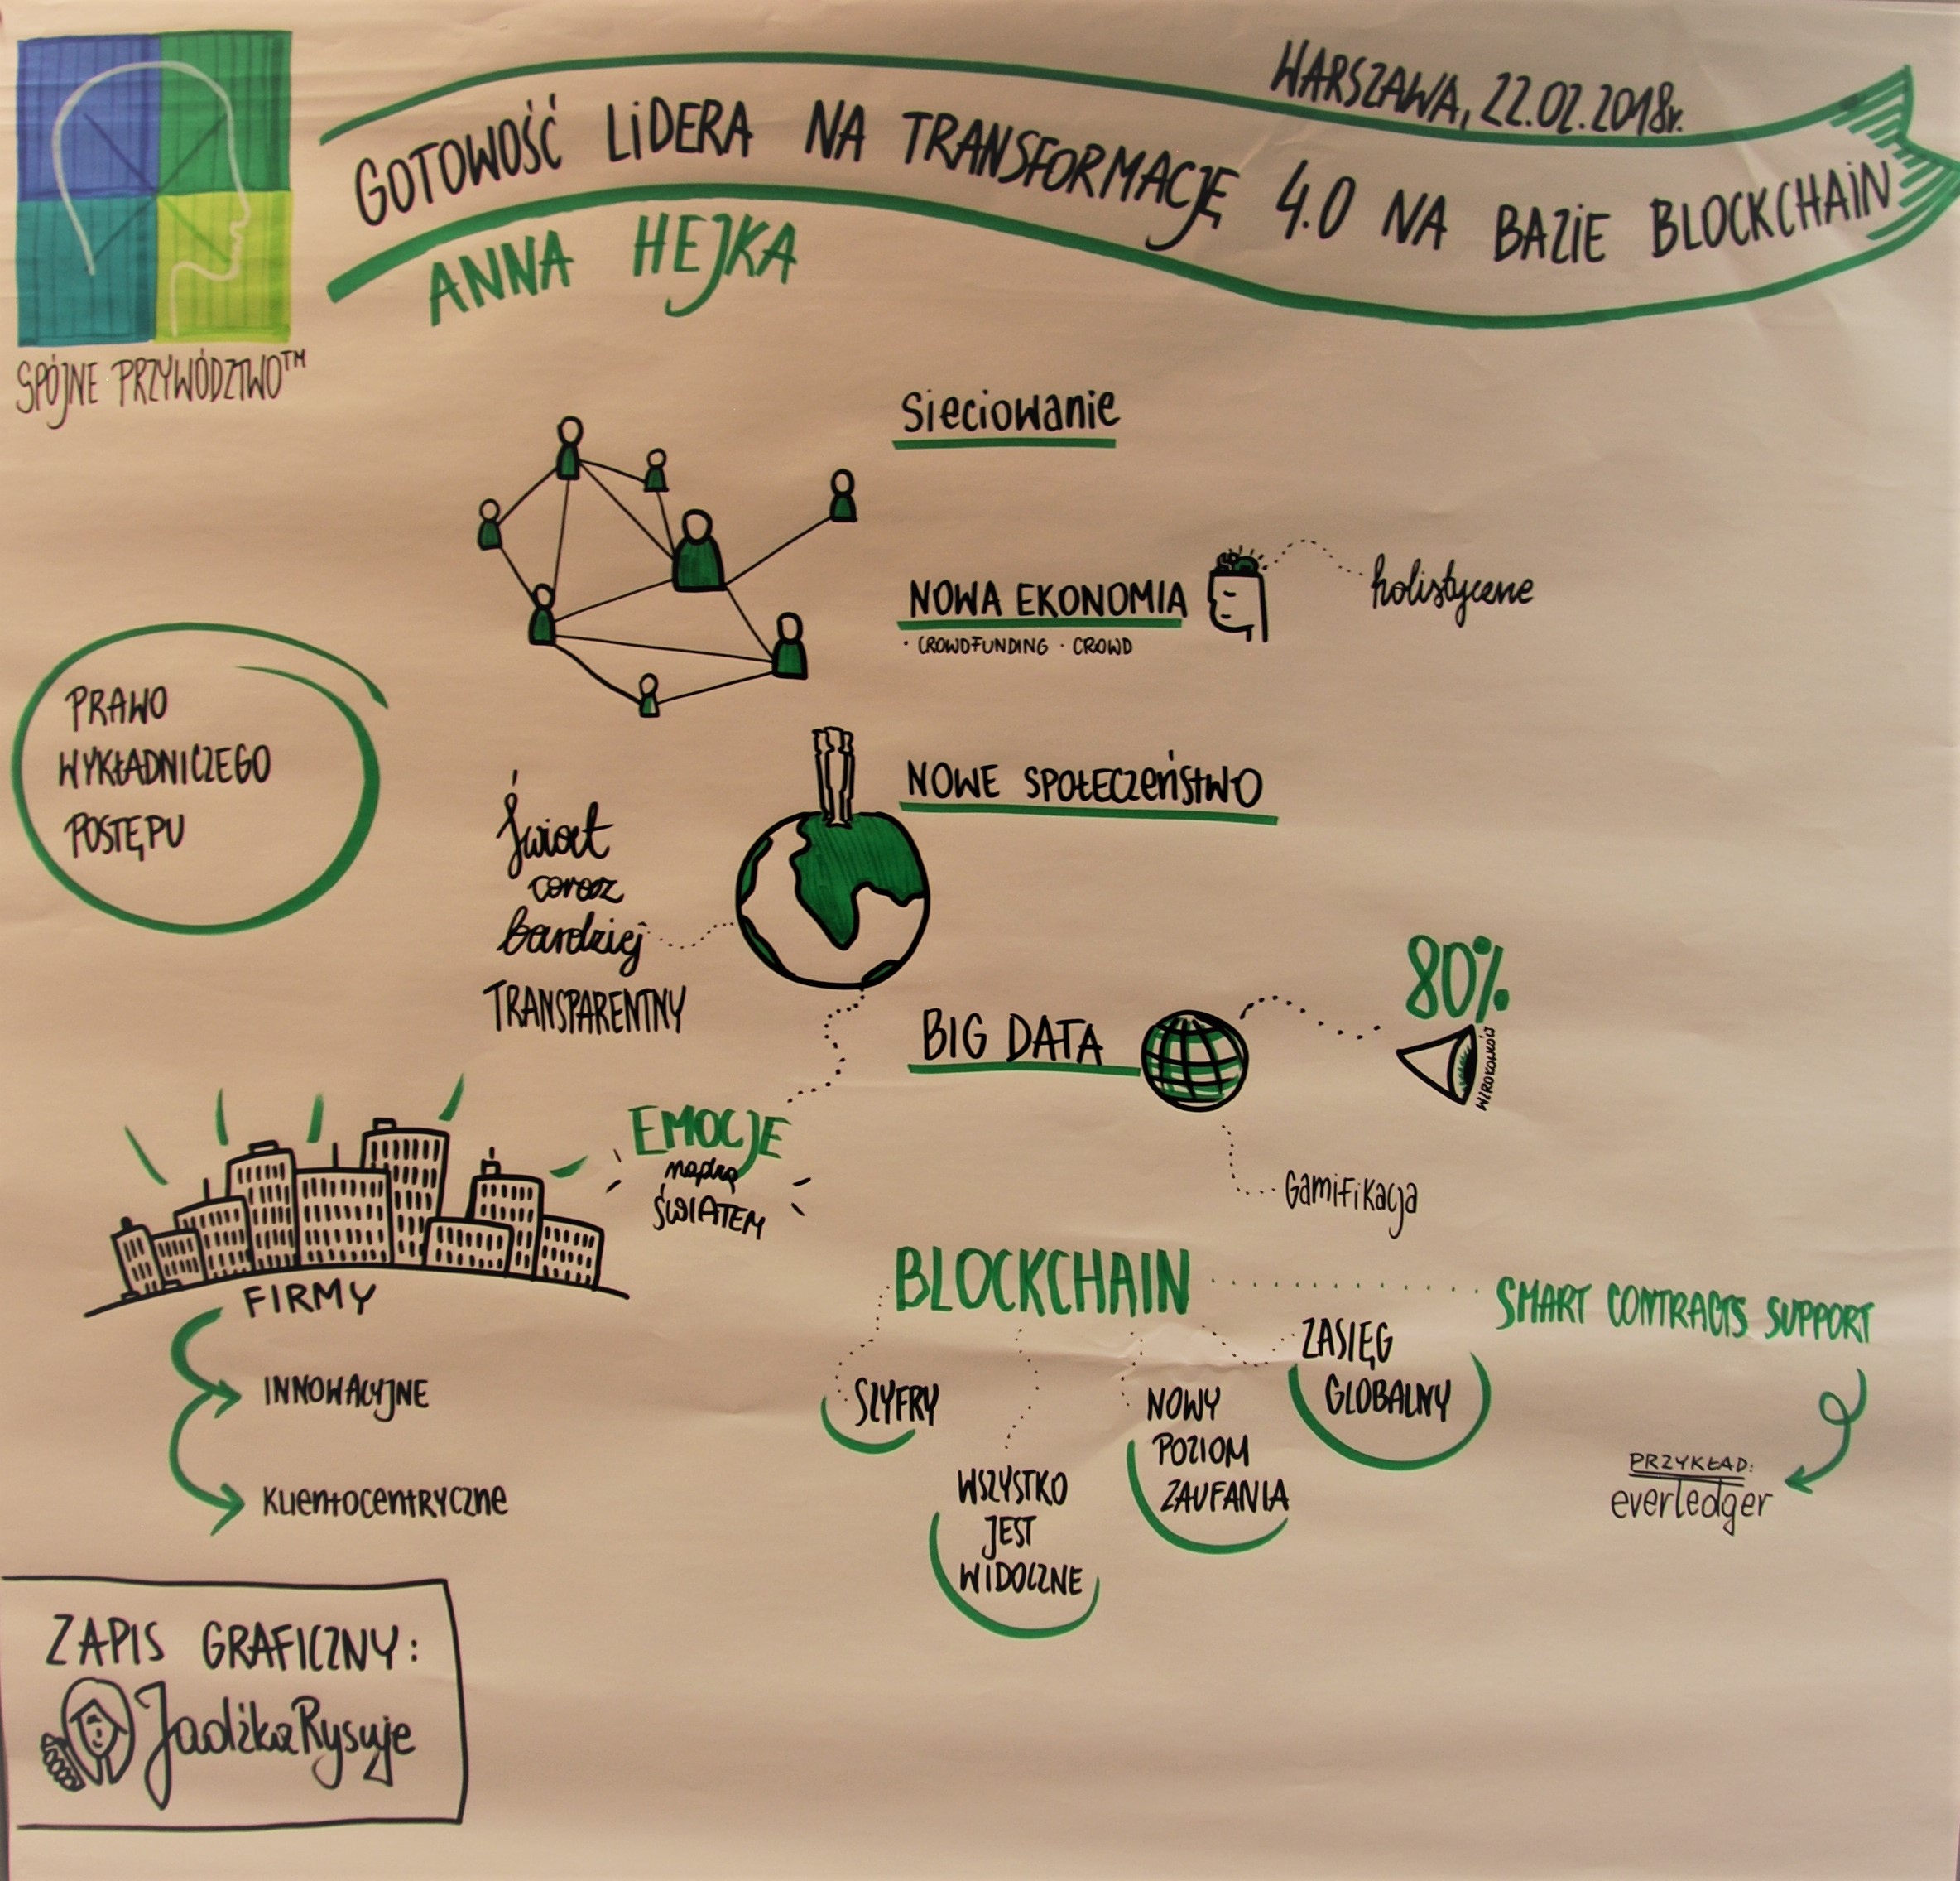 WARSZAWA, 22.02.2018r.
GOTOWOŚĆ LIDERA NA TRANSFORMACJĘ 4.0 NA BAZIE BLOCKCHAIN
ANNA HEJKA
SPÓJNE PRZYWÓDZTWO™
Sieciowanie
NOWA EKONOMIA
holistyczne
· CROWDFUNDING · CROWD
PRAWO
WYKŁADNICZEGO
POSTĘPU
NOWE SPOŁECZEŃSTWO
Świat
coraz
bardziej
TRANSPARENTNY
80%
WZROKOWCÓW
BIG DATA
EMOCJE
rządzą
ŚWIATEM
Gamifikacja
FIRMY
INNOWACYJNE
Klientocentryczne
BLOCKCHAIN
SMART CONTRACTS SUPPORT
ZASIĘG
GLOBALNY
SZYFRY
NOWY
POZIOM
ZAUFANIA
WSZYSTKO
JEST
WIDOCZNE
PRZYKŁAD:
everledger
ZAPIS GRAFICZNY:
JadźkaRysuje